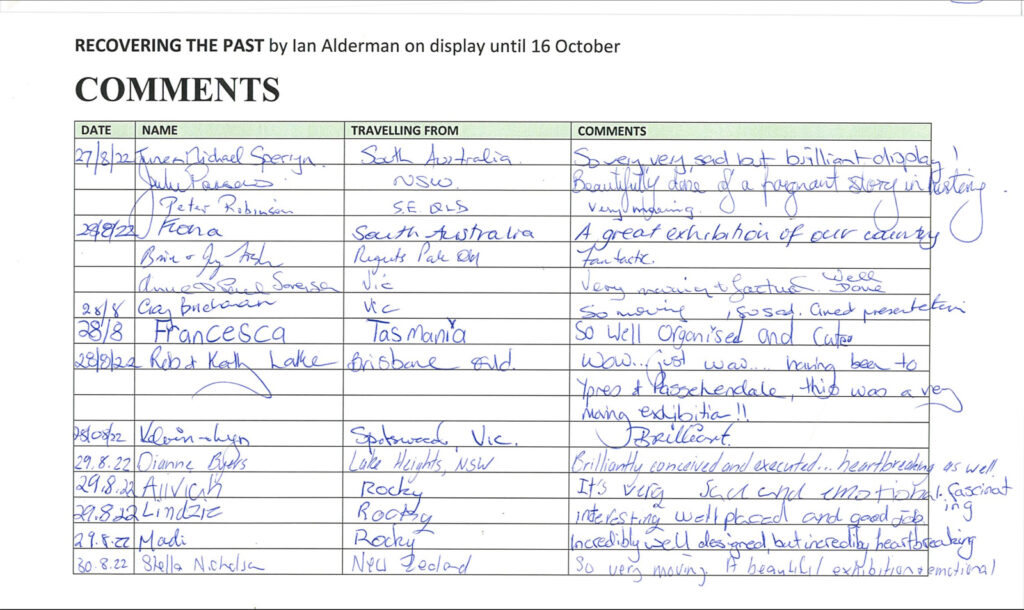 RECOVERING THE PAST by Ian Alderman on display until 16 October
COMMENTS
DATE NAME TRAVELLING FROM COMMENTS
27/8/22 June & Michael Speriyn. South Australia. So very very sad but brilliant display!
Julie NSW. Beautifully done of a pognant story in history.
Peter Robinson S.E. QLD Very moving.
28/8/22 Fiona South Australia A great exhibition of our country
Brian & Fantastic.
Anne & Paul Sorensen Vic Very moving & factual. Well Done
28/8 Vic So moving, so sad. presentation
28/8 Francesca Tasmania So Well Organised and
28/8/22 Rob & Kath Lake Brisbane Qld. Wow... just wow.... having been to
Ypres & Passchendale, this was a very
moving exhibition!!
28/08/22 Spotswood, Vic. Brilliant.
29.8.22 Dianne Byers Lake Heights, NSW Brilliantly conceived and executed... heartbreaking as well.
29.8.22 Rocky It's very sad and emotional. fascinating
29.8.22 Lindzie Rocky interesting well placed and good job
29.8.22 Madi Rocky Incredibly well designed, but incredibly heartbreaking
30.8.22 Stella Nicholson New Zealand So very moving. A beautiful exhibition & emotional